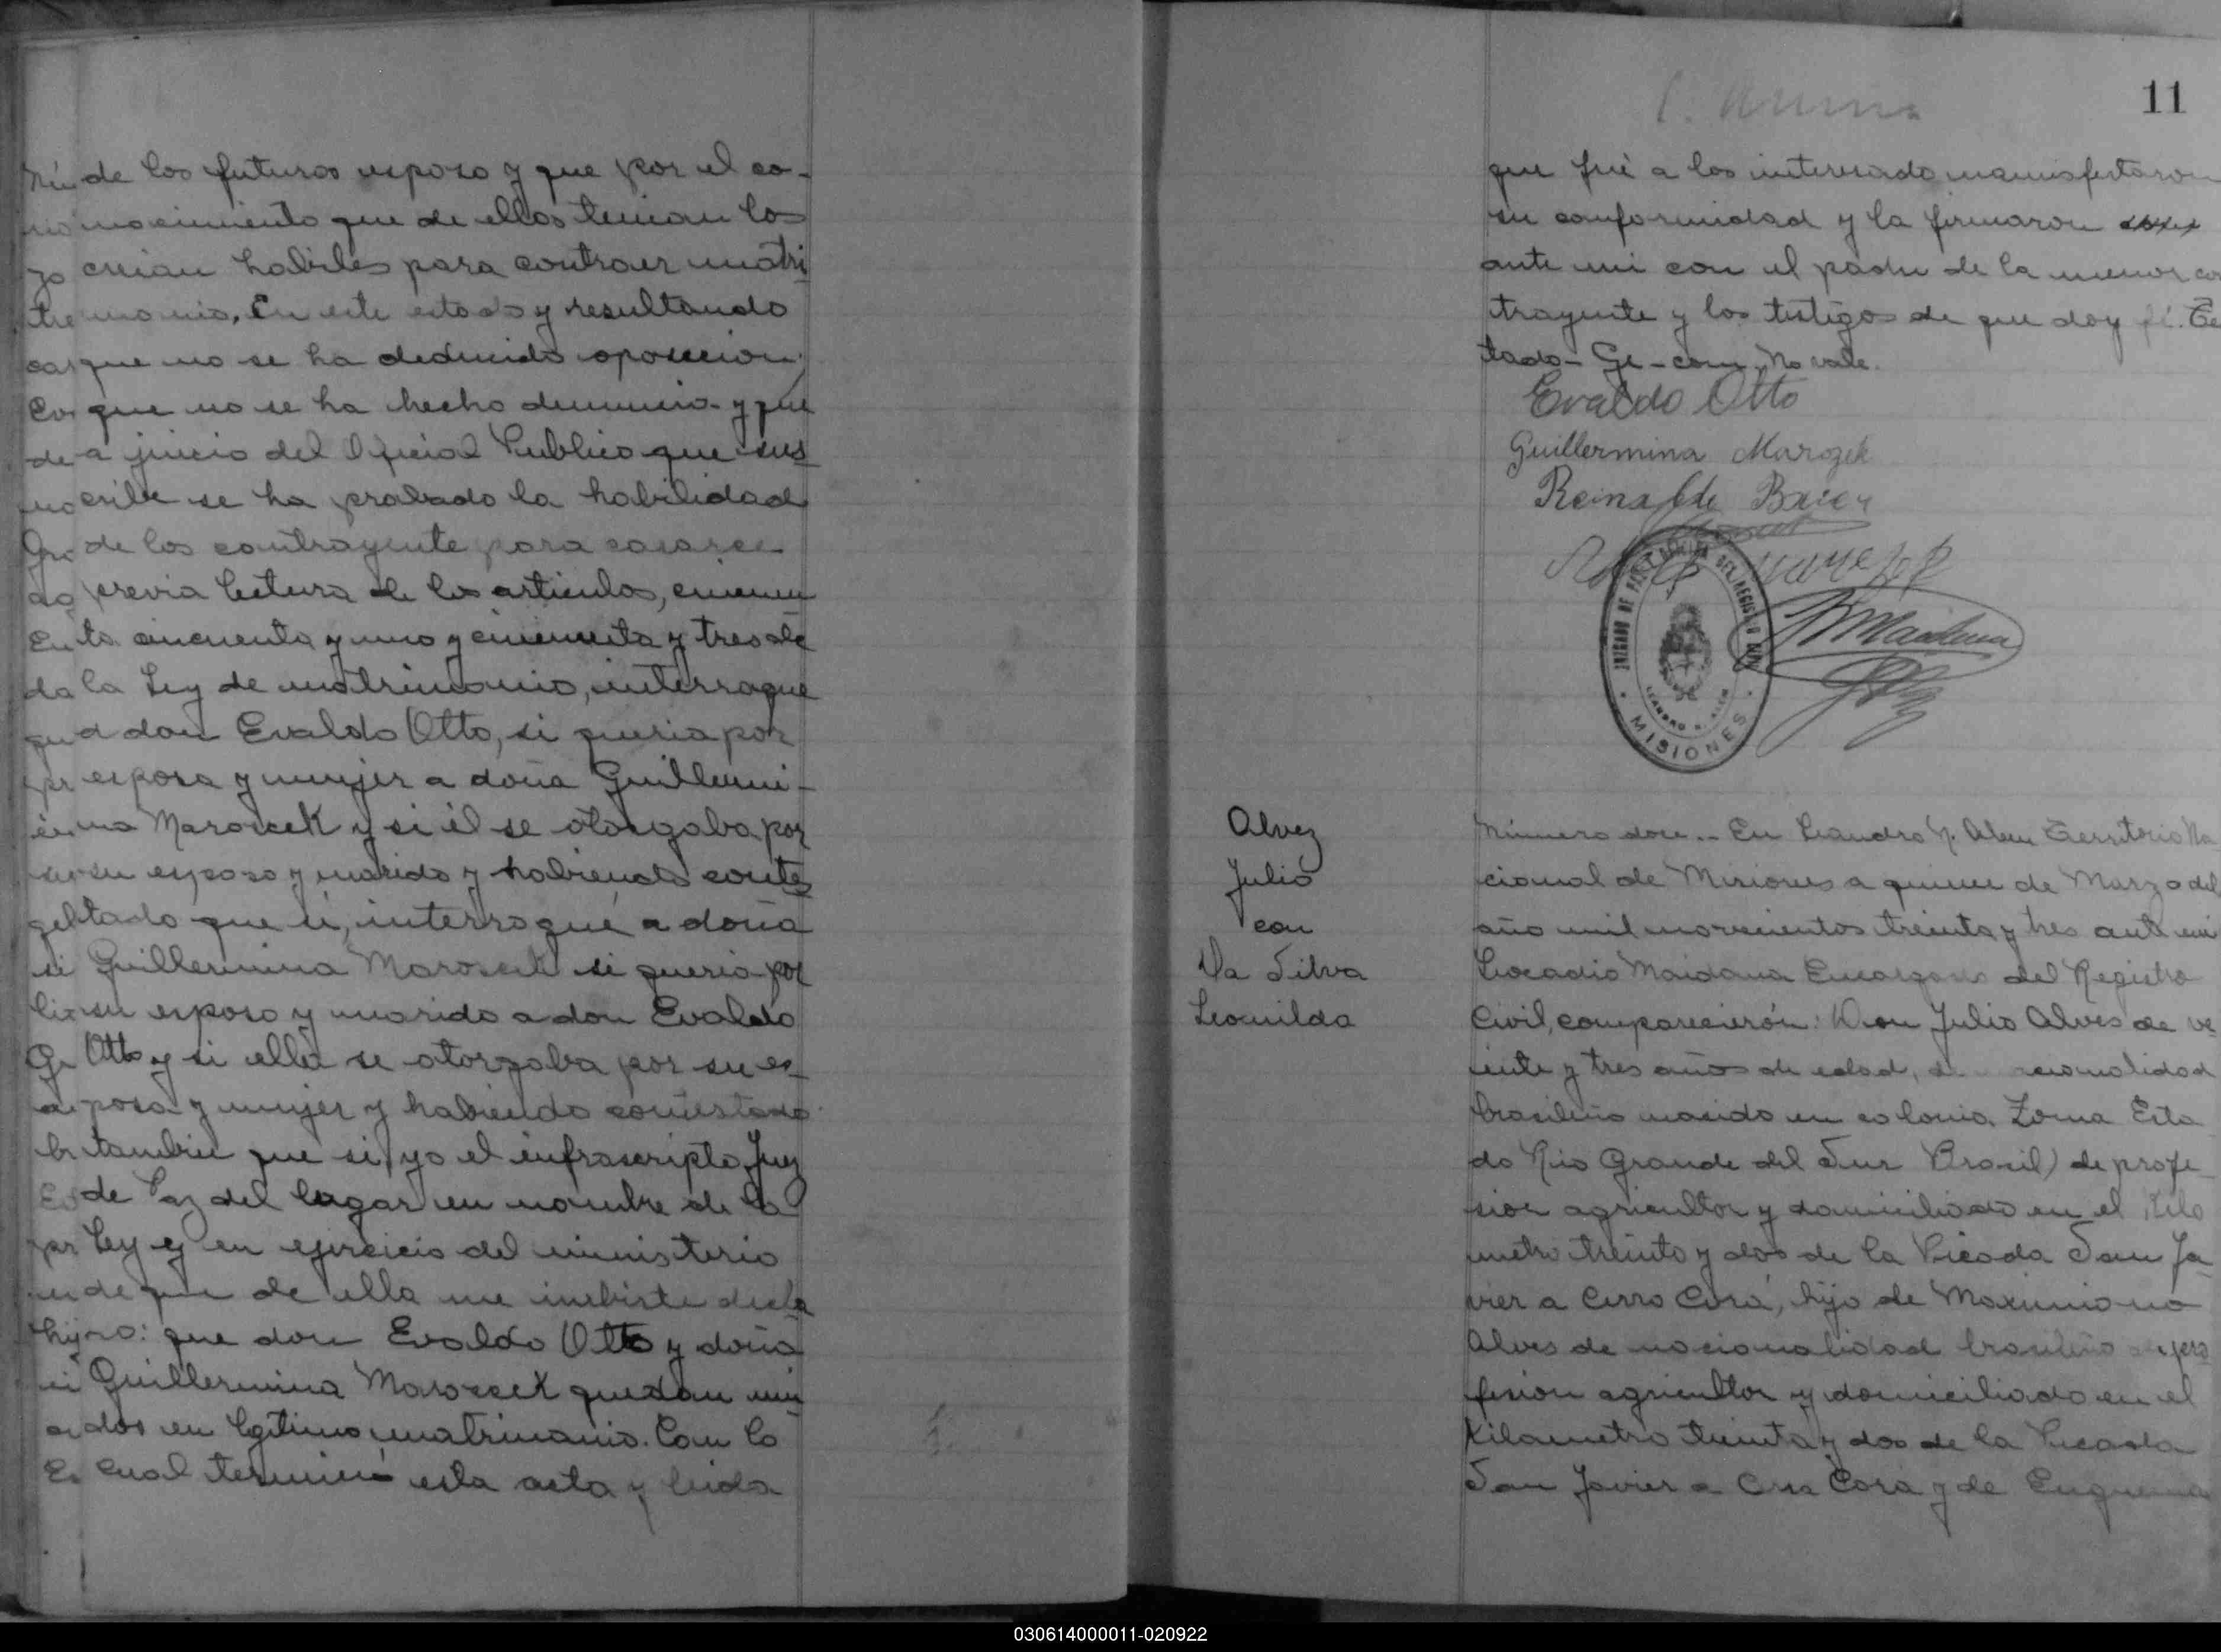 de los futuros esposo y que por el co-
nocimiento que de ellos tenian los
creian habiles para contraer matri
monio. En este estado y resultando
que no se ha deducido oposicion
que no se ha hecho denuncia y que
a juicio del Oficial Publico que sus
cribe se ha probado la habilidad
de los contrayente para casarce
previa lectura de los articulos, cincuen
ta cincuenta y uno y cincuenta y tres de
la Ley de matrimonio, interrogue
a don Evaldo Otto, si queria por
esposa y mujer a doña Guillermi-
na Maroscek y si él se otorgaba por
su esposo y marido y habiendo contes
tado que si, interrogué a doña
Guillermina Maroscek si queria por
su esposo y marido a don Evaldo
Otto y si ella se otorgaba por su es-
posa y mujer y habiendo contestado
tambien que si, yo el infrascripto Juez
de Paz del lugar en nombre de la
Ley y en ejercicio del ministerio
que de ella me inbiste decla
ro: que don Evaldo Otto y doña
Guillermina Maroscek quedan uni
dos en lgitimo matrimonio. Con lo
cual terminó esta acta y leida
11
que fué a los interesado manisfestaron
su conformidad y la firmaron
ante mi con el padre de la menor con
trayente y los testigos de que doy fé. Tes
tado - Ge - com. No vale.
Evaldo Otto
Guillermina Marozek
Reinaldo
JUZGADO DE PAZ
DEL REGISTRO CIVIL
LEANDRO N. ALEM
MISIONES
Alvez
Julio
con
Da Silva
Leonilda
Número doce.. En Leandro N. Alem Territorio Na
cional de Misiones a quince de Marzo del
año mil novecientos treinta y tres ante mi
Leocadio Maidana Encargado del Registro
Civil, comparecierón: Don Julio Alves de ve
inte y tres años de edad, de nacionalidad
brasileño nasido en colonia Estа
do Rio Grande del Sur Brasil) de profe
sion agricultor y domiciliado en el Kilo
metro treinta y dos de la Picada San Ja-
vier a Cerro Corá, hijo de Maximiano
Alves de nacionalidad brasileño de pro
fesion agricultor y domiciliado en el
Kilometro treinta y dos de la Picada
San Javier a Corá y de
030614000011-020922